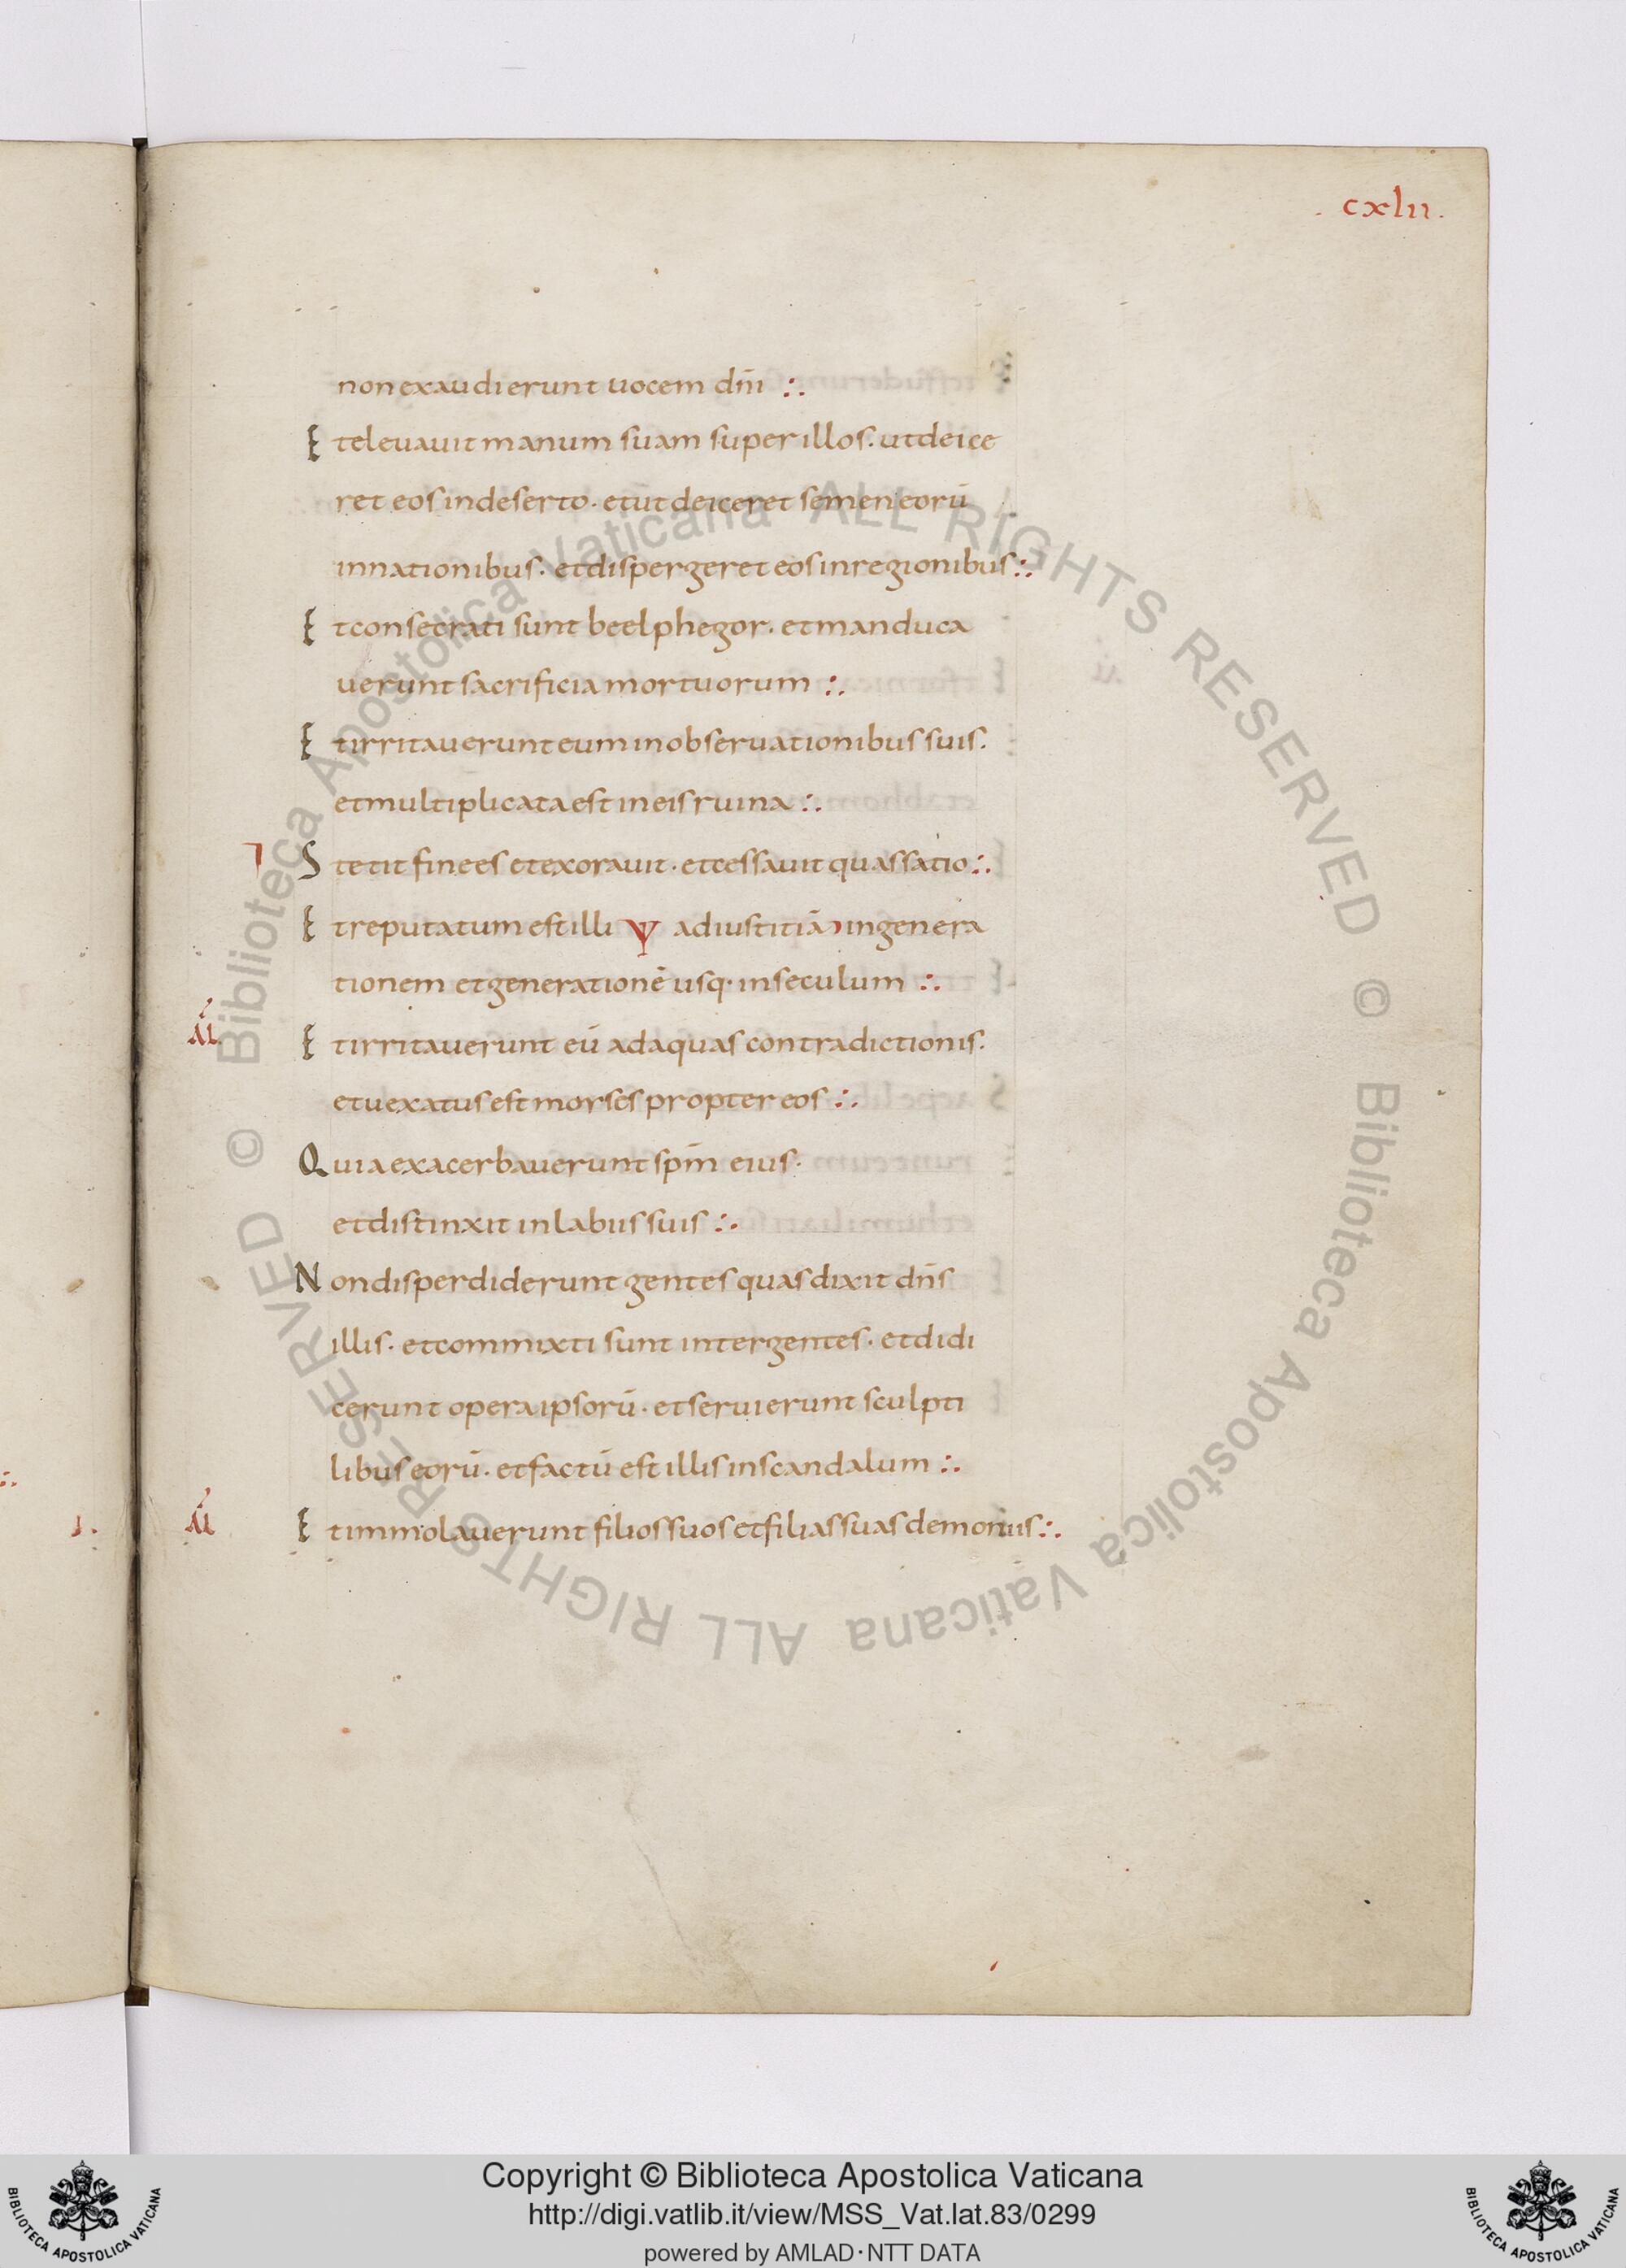 . cxlii.
non exaudierunt uocem dn̄i :.
Et eleuauit manum suam super illos. ut deice
ret eos in deserto. et ut deiceret semen eorū
in nationibus. et dispergeret eos in regionibus :.
Et consecrati sunt beelphegor. et manduca
uerunt sacrificia mortuorum :.
Et irritauerunt eum in obseruationibus suis.
et multiplicata est in eis ruina :.
Stetit finees et exorauit. et cessauit quassatio :.
Et reputatum est illi ad iustitiā in genera
tionem et generationē usq· in seculum :.
Et irritauerunt eū ad aquas contradictionis.
et uexatus est morses propter eos :.
Quia exacerbauerunt sp̄m eius.
et distinxit in labiis suis :.
Non disperdiderunt gentes quas dixit dn̄s
illis. et commixti sunt inter gentes. et didi
cerunt opera ipsorū. et seruierunt sculpti
libus eorū. et factū est illis in scandalum :.
Et immolauerunt filios suos et filias suas demoniis :.
© Biblioteca Apostolica Vaticana ALL RIGHTS RESERVED © Biblioteca Apostolica Vaticana ALL RIGHTS RESERVED
Copyright © Biblioteca Apostolica Vaticana
http://digi.vatlib.it/view/MSS_Vat.lat.83/0299
powered by AMLAD·NTT DATA
BIBLIOTECA APOSTOLICA VATICANA
BIBLIOTECA APOSTOLICA VATICANA